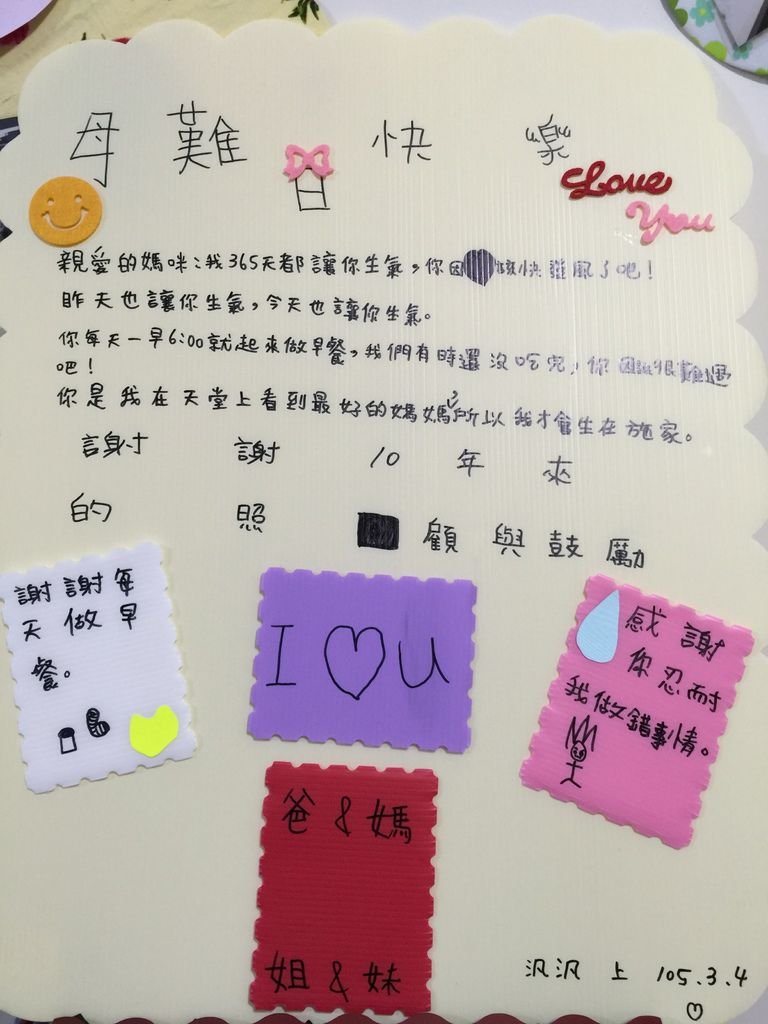 母難日快樂
Love
You
親愛的媽咪:我365天都讓你生氣,你因該快難風了吧!
昨天也讓你生氣,今天也讓你生氣。
你每天一早6:00就起來做早餐,我們有時還沒吃完,你因該很難過
吧!
你是我在天堂上看到最好的媽媽,所以我才會生在施家。
謝謝10年來
的照顧與鼓勵
謝謝每
天做早
餐。
I ♡ U
感謝
你忍耐
我做錯事情。
爸 & 媽
姐 & 妹
汎汎 上 105.3.4
♡